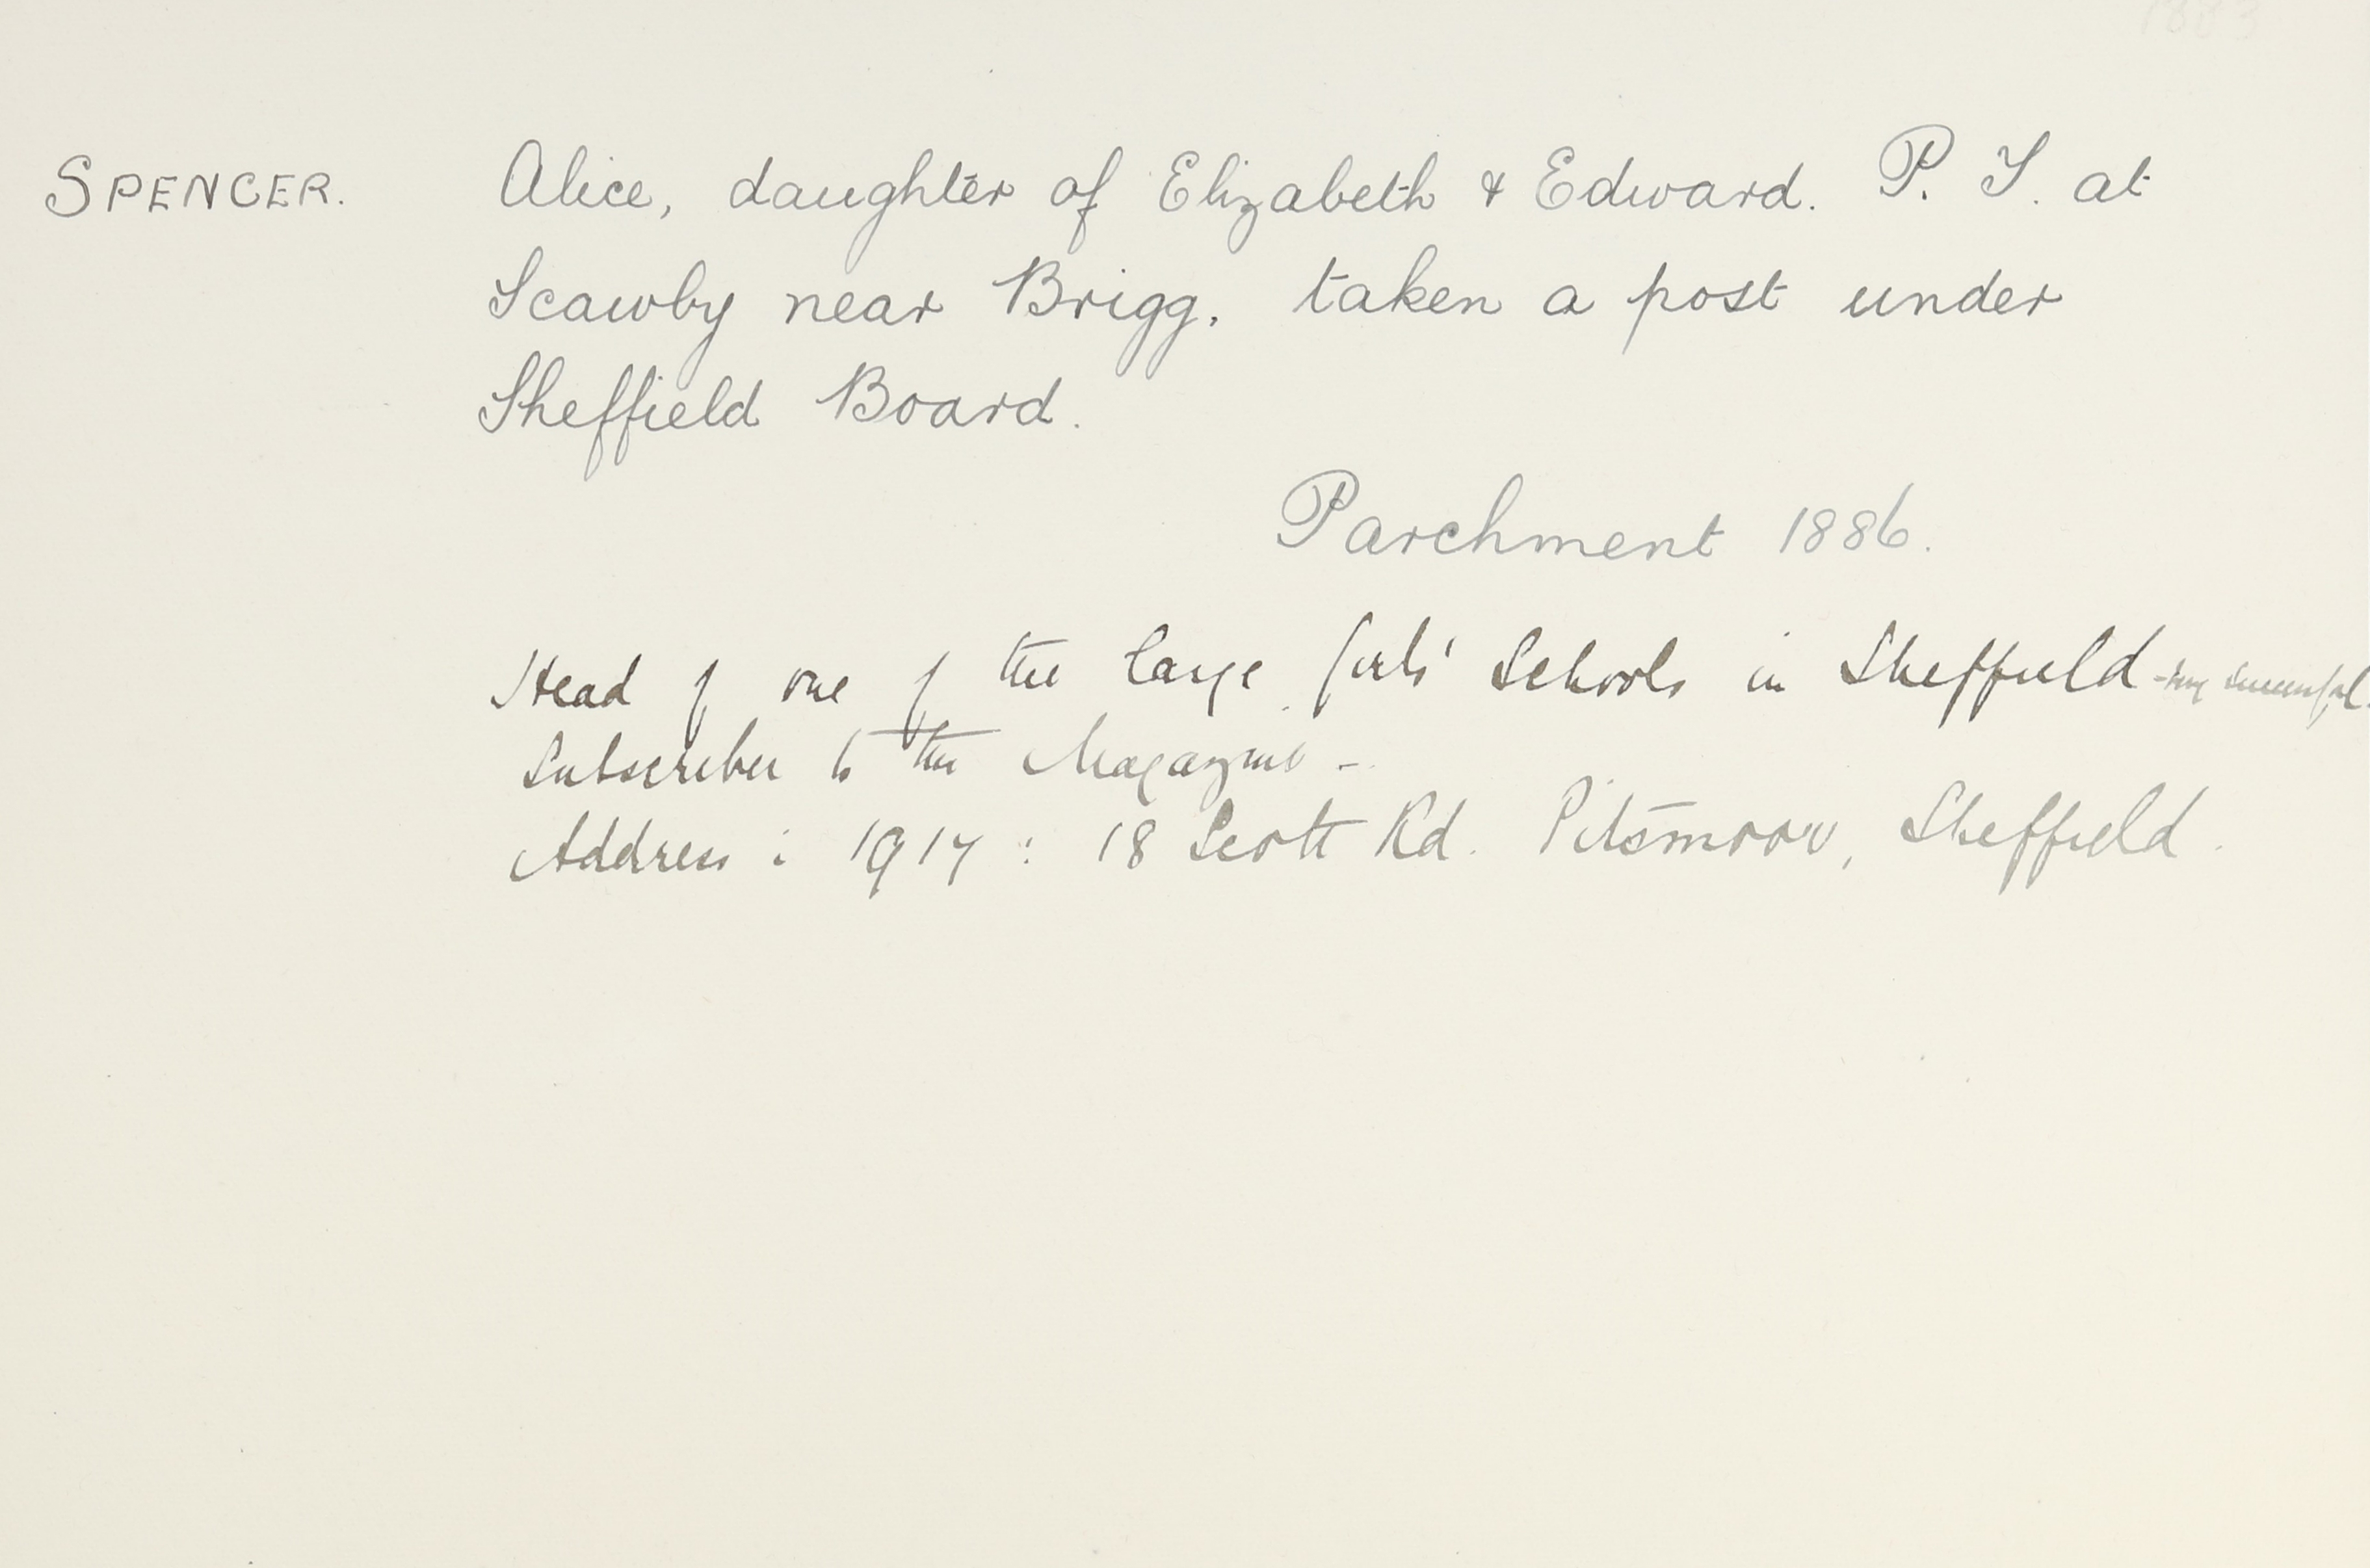 1883
SPENCER. Alice, daughter of Elizabeth & Edward. P. T. at
Scawby near Brigg. taken a post under
Sheffield Board.
Parchment 1886.
Head of one of the large Girls' Schools in Sheffield - very successful.
Subscriber to the Magazine -
Address : 1917 : 18 Scott Rd. Pitsmoor, Sheffield.